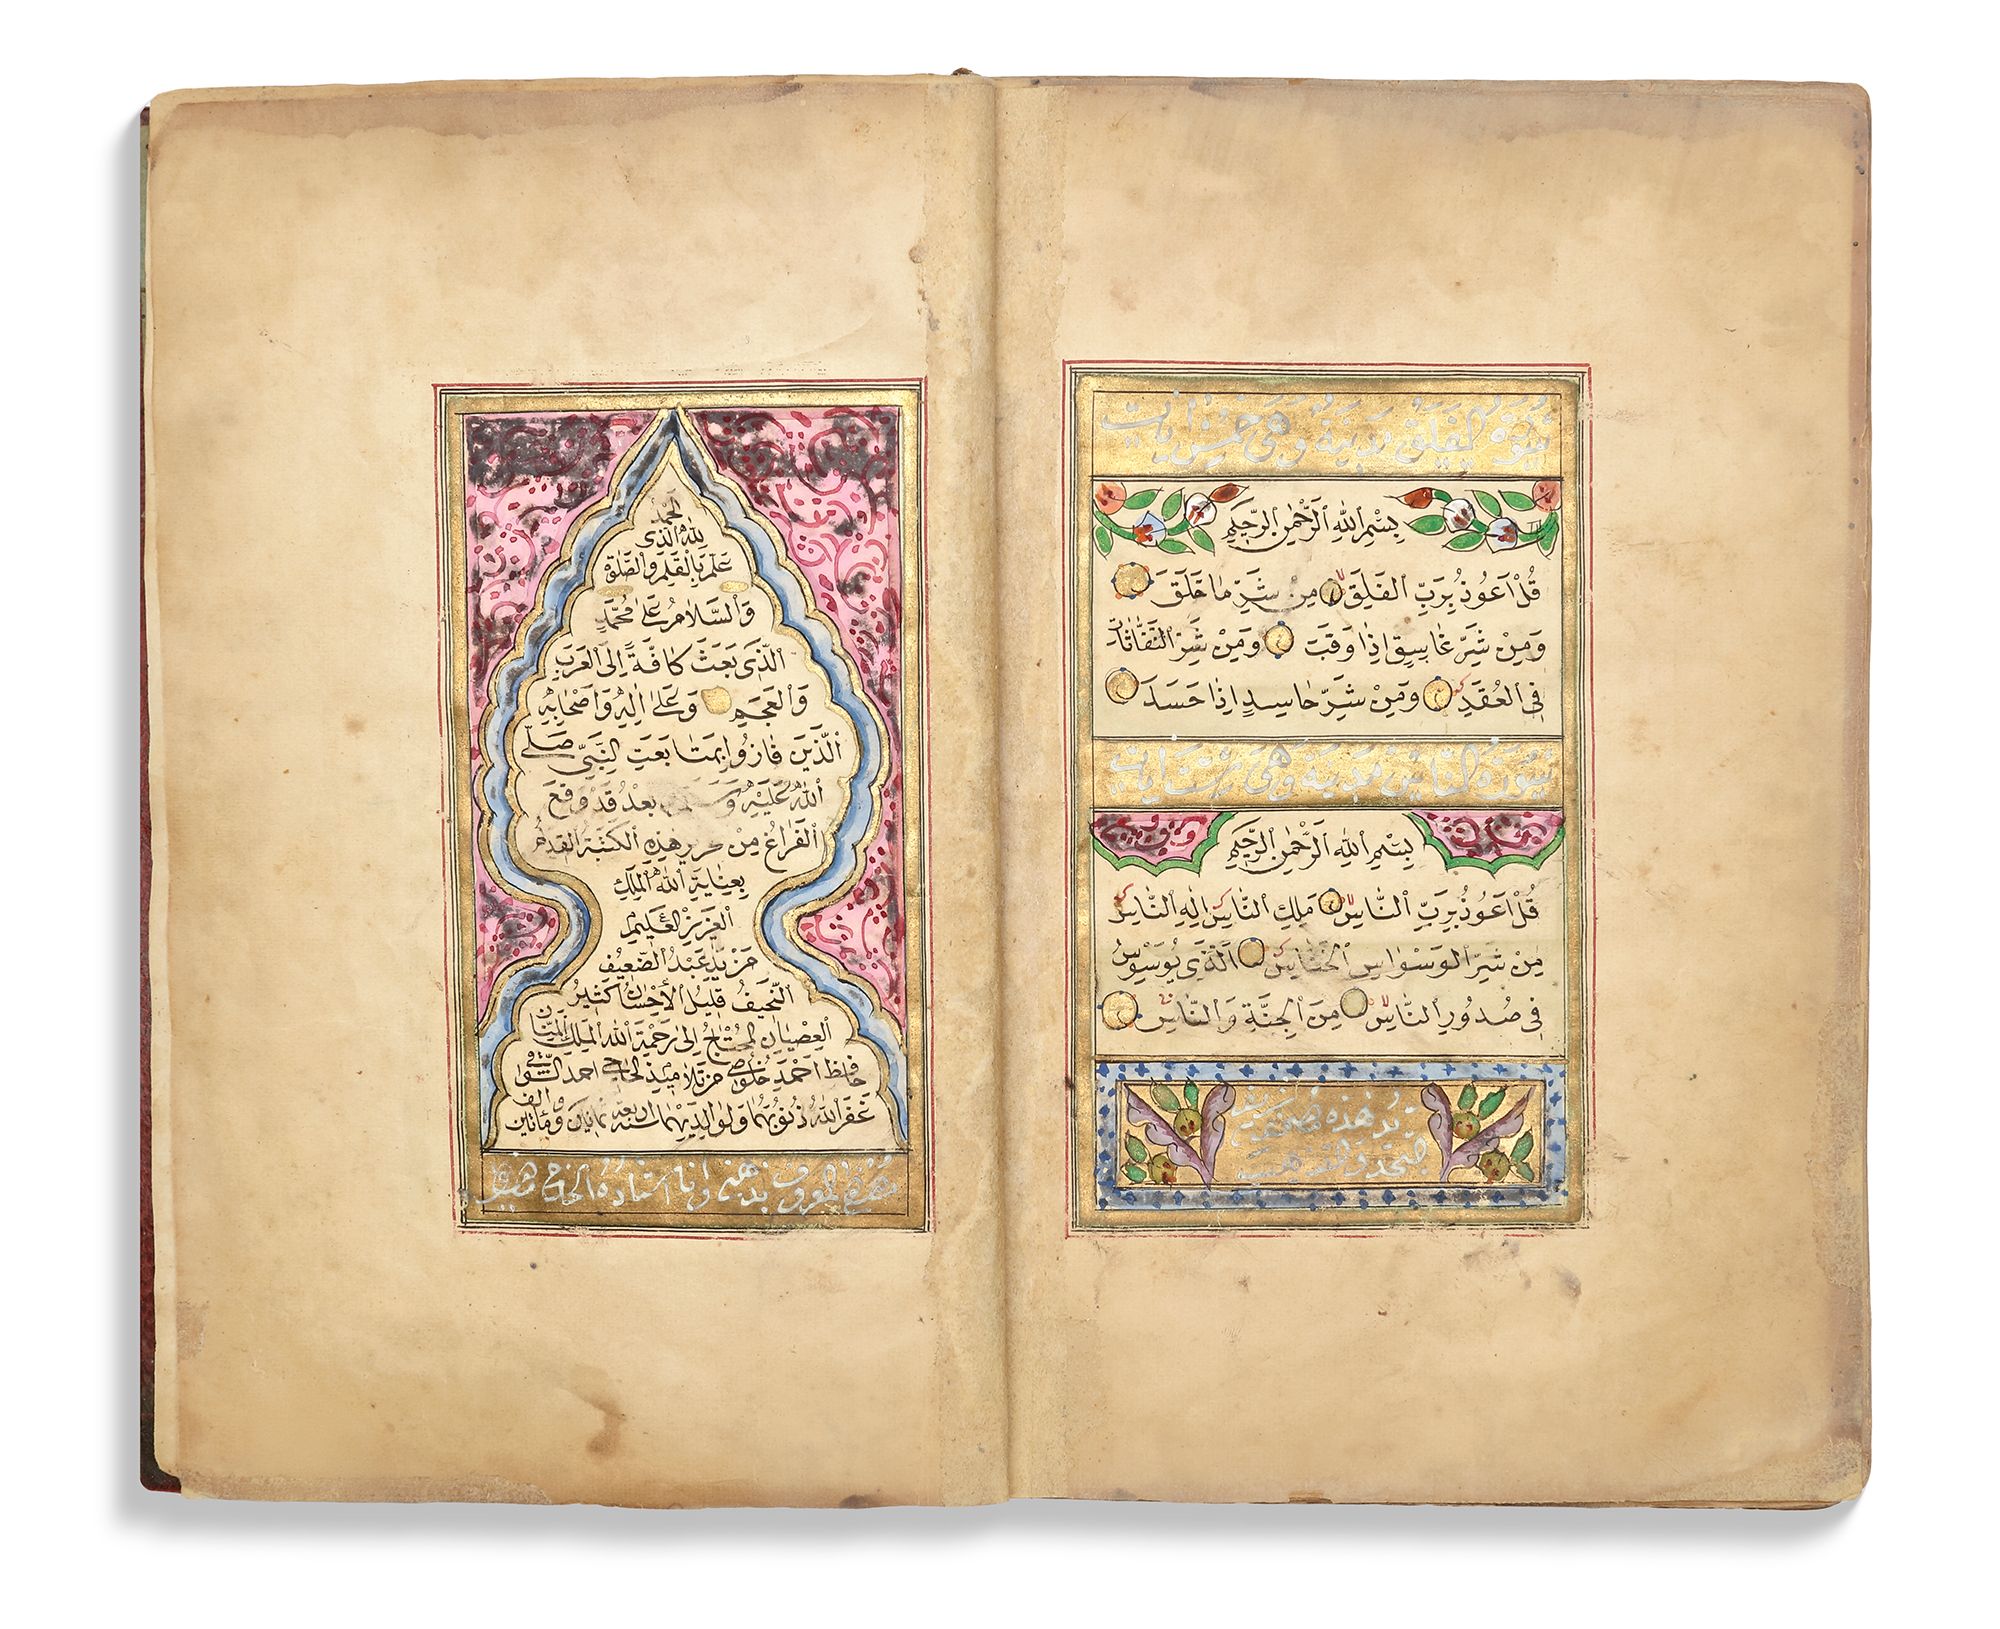 سُورَةُ الْفَلَقِ مَدَنِيَّةٌ وَهِيَ خَمْسُ اٰيَاتٍ
بِسْمِ اللهِ الرَّحْمٰنِ الرَّحِيمِ
قُلْ اَعُوذُ بِرَبِّ الْفَلَقِ مِنْ شَرِّ مَا خَلَقَ
وَمِنْ شَرِّ غَاسِقٍ اِذَا وَقَبَ وَمِنْ شَرِّ النَّفَّاثَاتِ
فِى الْعُقَدِ وَمِنْ شَرِّ حَاسِدٍ اِذَا حَسَدَ
سُورَةُ النَّاسِ مَدَنِيَّةٌ وَهِيَ سِتُّ اٰيَاتٍ
بِسْمِ اللهِ الرَّحْمٰنِ الرَّحِيمِ
قُلْ اَعُوذُ بِرَبِّ النَّاسِ مَلِكِ النَّاسِ اِلٰهِ النَّاسِ
مِنْ شَرِّ الْوَسْوَاسِ الْخَنَّاسِ اَلَّذِى يُوَسْوِسُ
فِى صُدُورِ النَّاسِ مِنَ الْجِنَّةِ وَالنَّاسِ
هٰذِهِ
اَلْحَمْدُ
لِلّٰهِ الَّذِى
عَلَّمَ بِالْقَلَمِ وَالصَّلٰوةُ
وَالسَّلَامُ عَلَى مُحَمَّدٍ
الَّذِى بَعَثَ كَافَّةً اِلَى الْعَرَبِ
وَالْعَجَمِ وَعَلَى اٰلِهِ وَاَصْحَابِهِ
الَّذِينَ فَازُوا بِمَتَابَعَتِ النَّبِىِّ صَلَّى
اللهُ عَلَيْهِ وَسَلَّمَ بَعْدُ قَدْ وَقَعَ
الْفَرَاغُ مِنْ تحرير هٰذِهِ
بِعِنَايَةِ اللهِ الْمَلِكِ
الْعَزِيزِ الْعَلِيمِ
مِنْ يَدِ عَبْدِ الضَّعِيفِ
النَّحِيفُ قَلِيلُ الْاِحْسَانِ كَثِيرُ
الْعِصْيَانِ الْمُحْتَاجُ اِلَى رَحْمَةِ اللهِ الْمَلِكِ الْمَنَّانِ
حَافِظْ اَحْمَدْ خُلُوصِى مِنْ تَلَامِيذِ الْحَاجِّ اَحْمَدْ
غَفَرَ اللهُ ذُنُوبَهُمَا وَلِوَالِدَيْهِمَا سَنَةَ اَرْبَعَةَ ثَمَانِينَ وَمِائَتَيْنِ وَاَلْفٍ
الْمَعْرُوفُ اُسْتَادُهُ الْحَاجّ